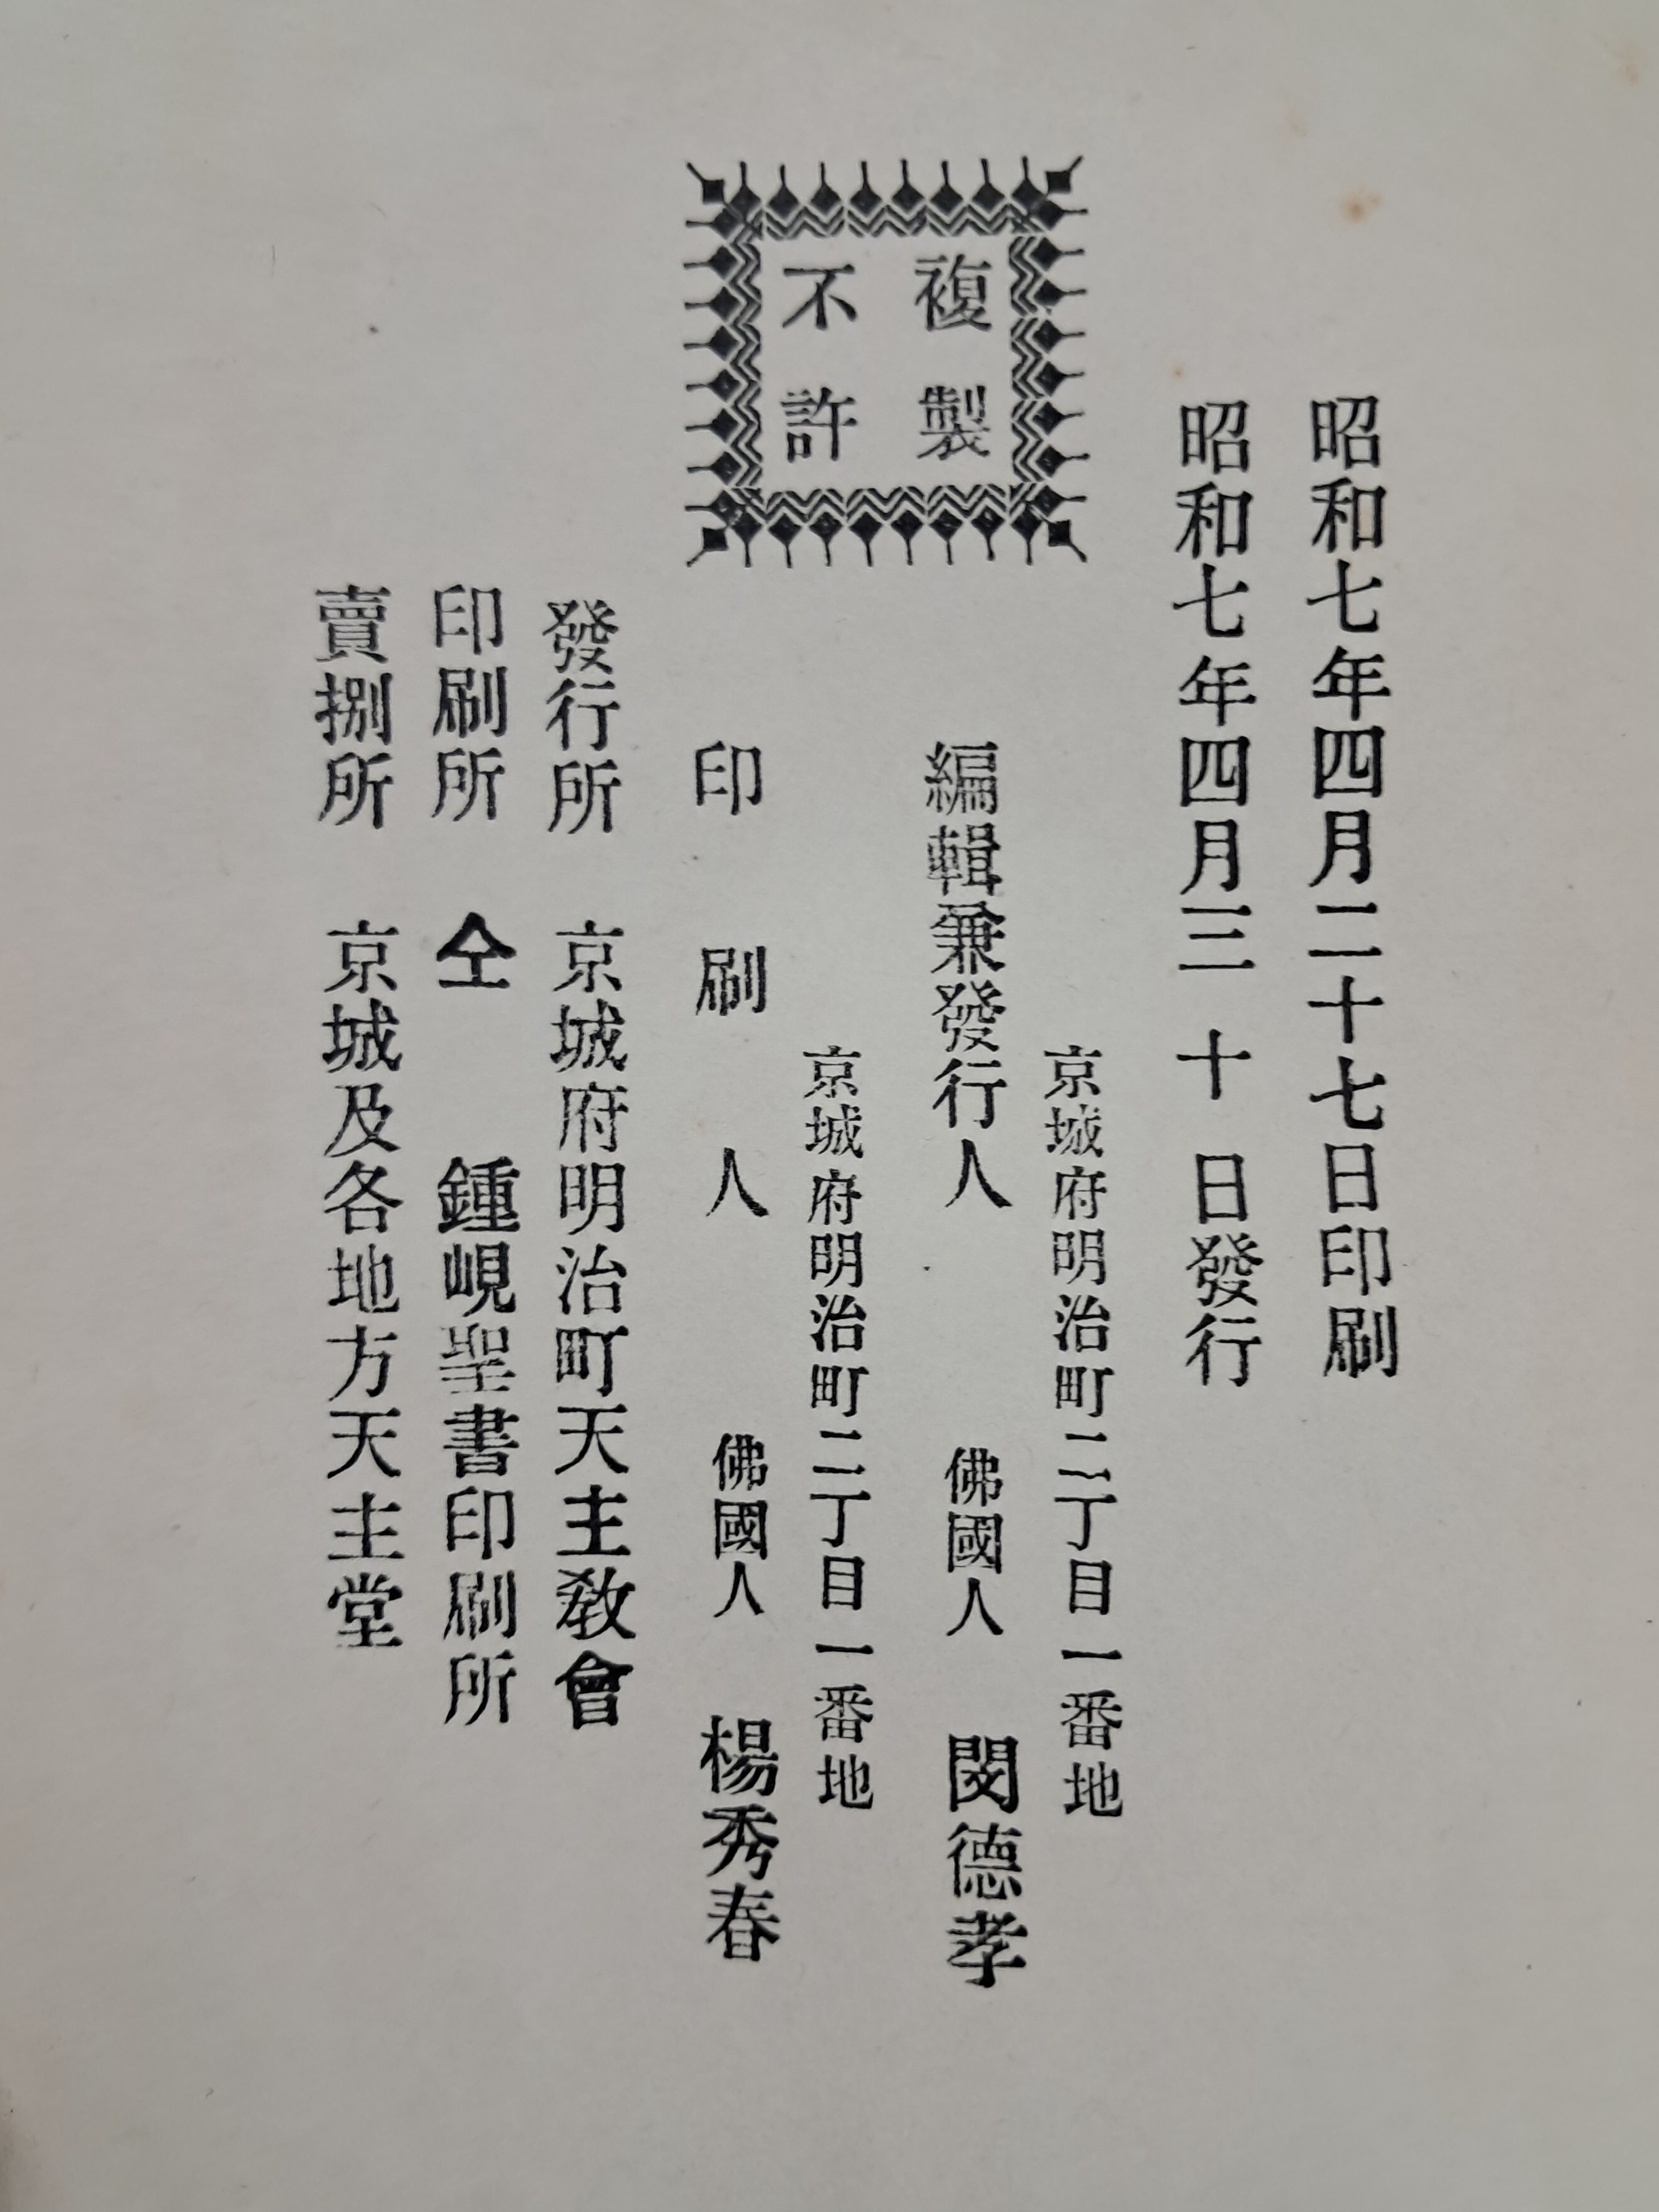 昭和七年四月二十七日印刷
昭和七年四月三十日發行
複製
不許
京城府明治町二丁目一番地
編輯兼發行人 佛國人 閔德孝
京城府明治町二丁目一番地
印刷人 佛國人 楊秀春
發行所 京城府明治町天主敎會
印刷所 仝 鍾峴聖書印刷所
賣捌所 京城及各地方天主堂